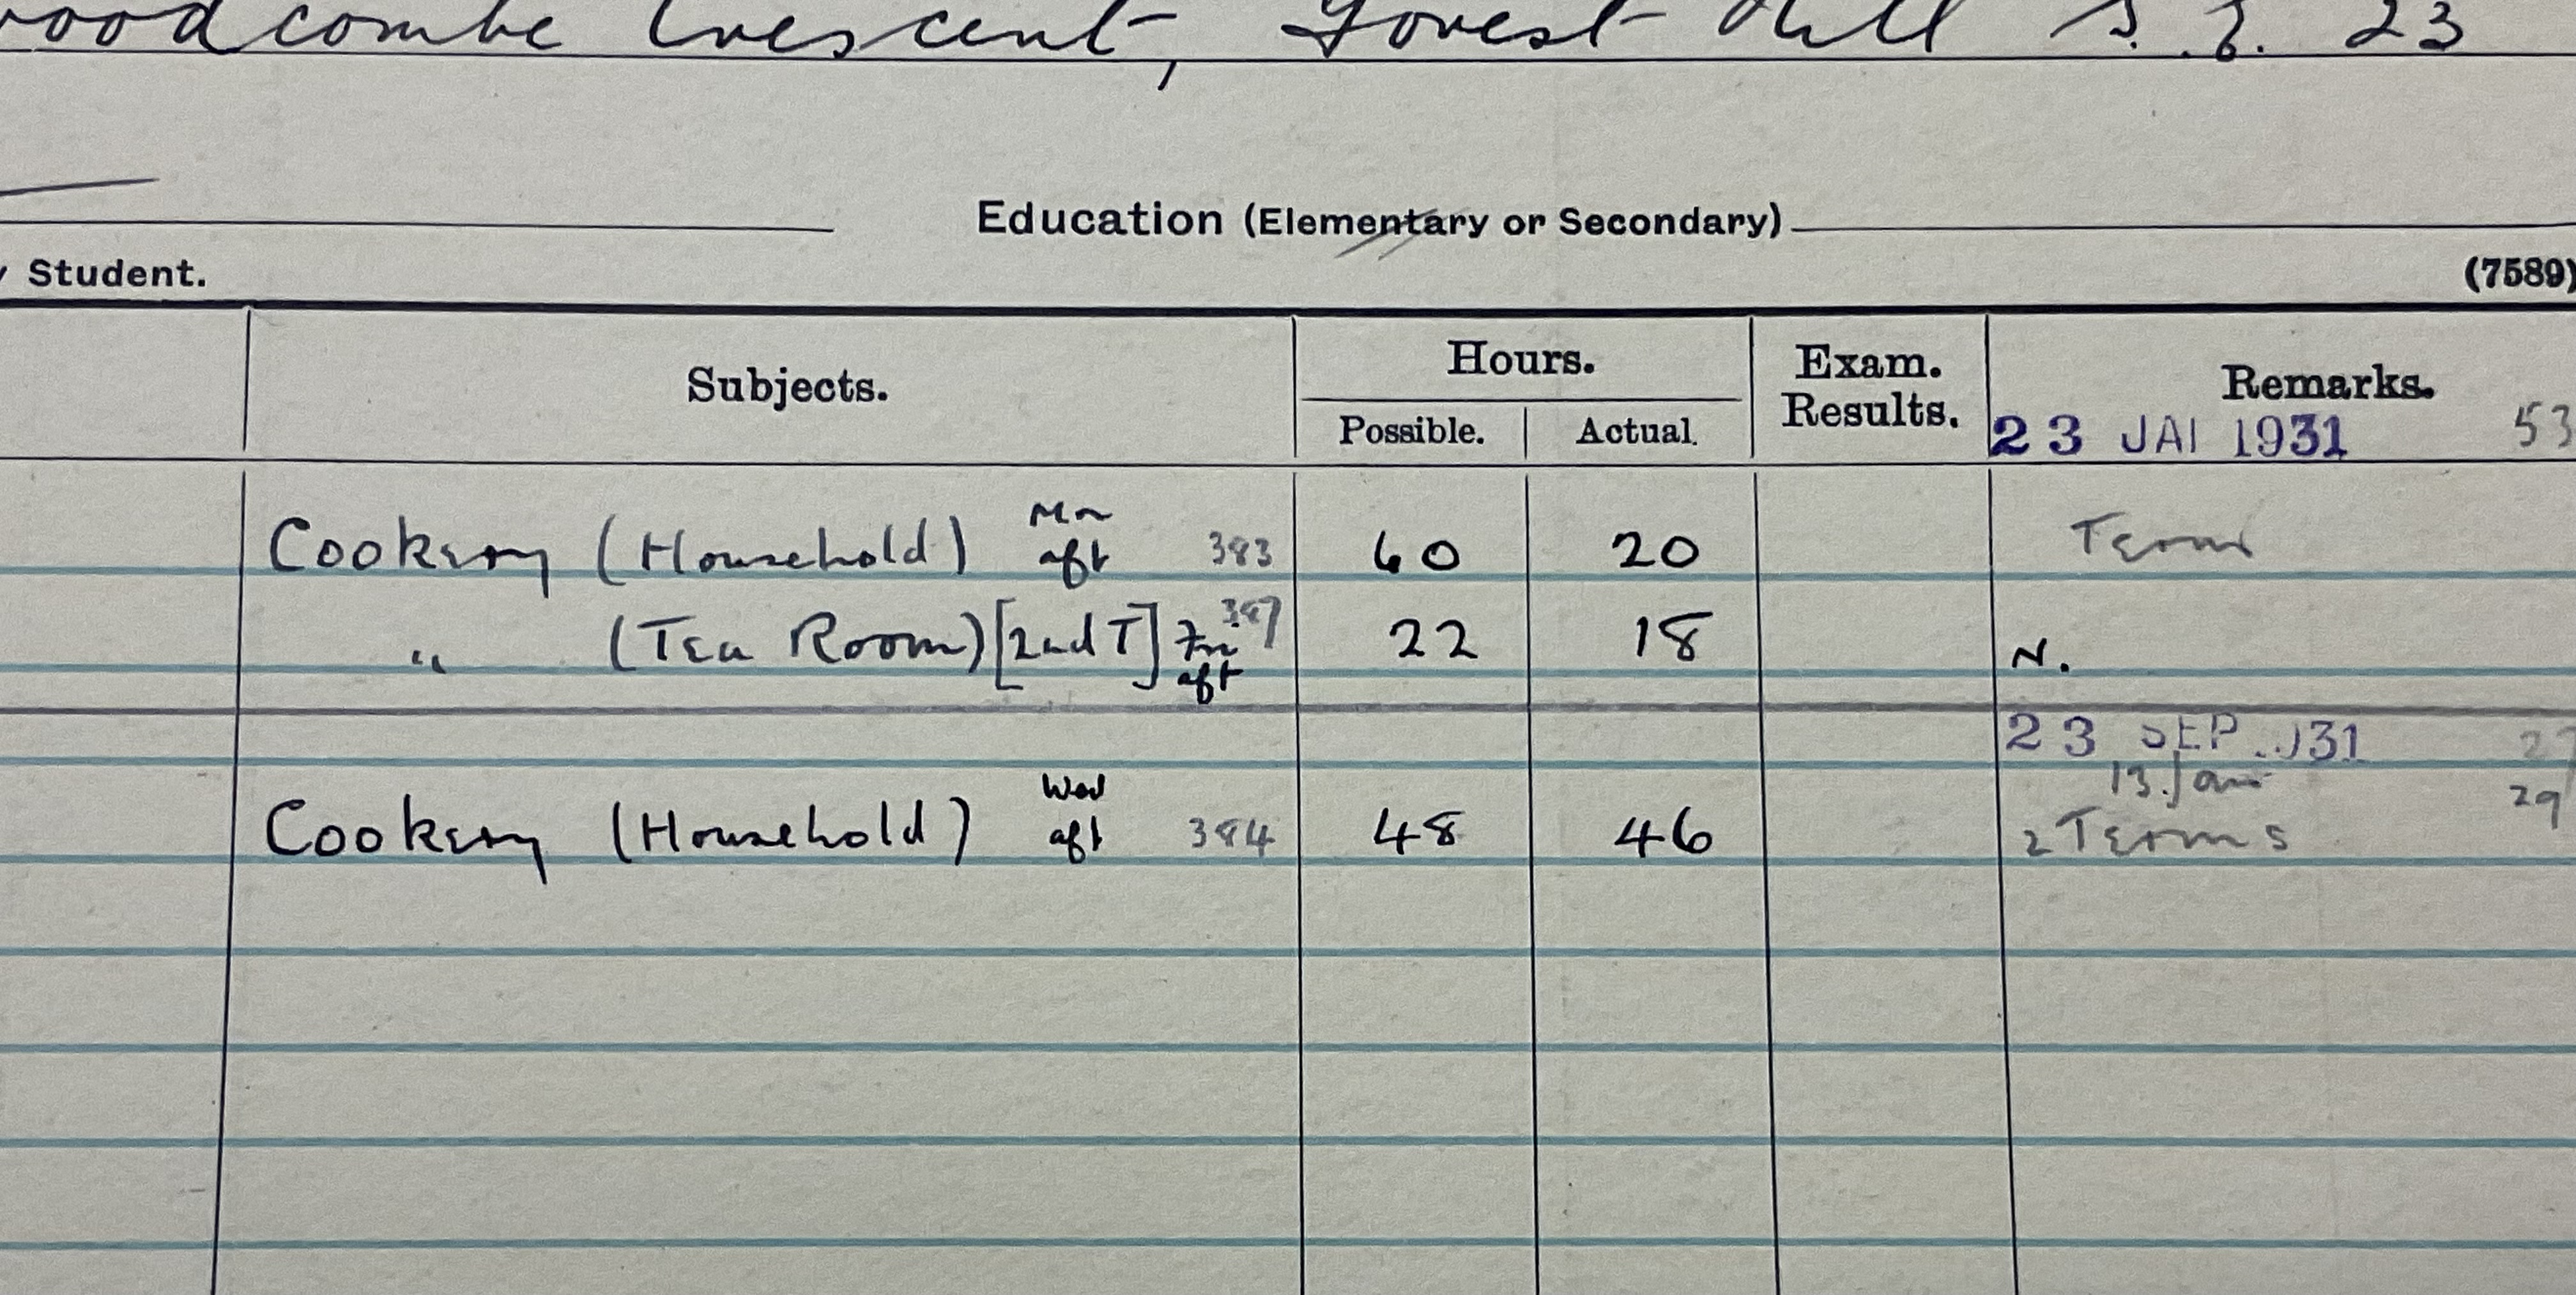 oodcombe Crescent, Forest Hill S.E. 23
Education (Elementary or Secondary)
Student. (7589)
Subjects. Hours. Exam. Results. Remarks.
Possible. Actual. 23 JAN 1931 53
Cookery (Household) Mon aft 383 60 20 Term
" (Tea Room) [2nd T] Fri aft 387 22 18 N.
23 SEP 1931 27
13. Jan 29
Cookery (Household) Wed aft 384 48 46 2 Terms